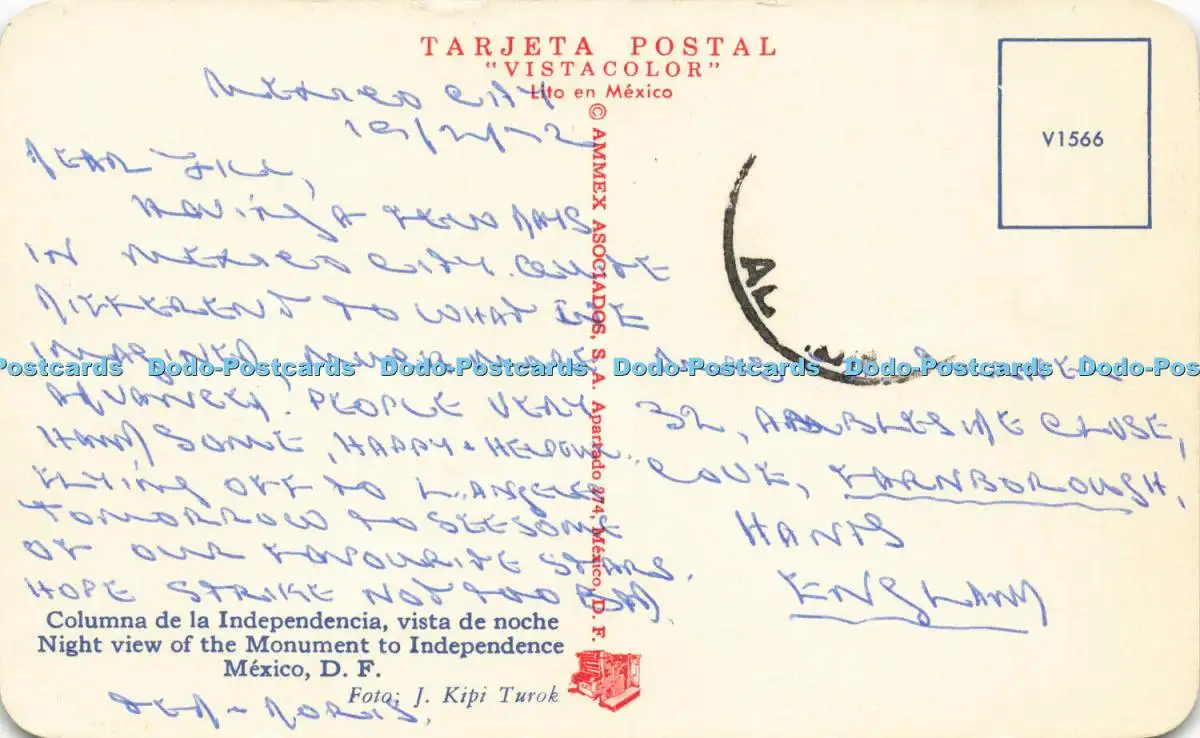 TARJETA POSTAL
"VISTACOLOR"
Lito en México
V1566
© AMMEX ASOCIADOS, S. A. Apartado 874, México, D. F.
MEXICO CITY
19/2/72
DEAR JILL,
HAVING A FEW DAYS
IN MEXICO CITY. QUITE
DIFFERENT TO WHAT WE
IMAGINED, MUCH MORE
ADVANCED. PEOPLE VERY
HANDSOME, HAPPY & HELPFUL.
FLYING OFF TO L. ANGELES
TOMORROW TO SEE SOME
OF OUR FAVOURITE STARS.
HOPE STRIKE NOT TOO BAD
DORIS.
32, AMBLESIDE CLOSE,
COVE, FARNBOROUGH,
HANTS
ENGLAND
Columna de la Independencia, vista de noche
Night view of the Monument to Independence
México, D. F.
Foto: J. Kipi Turok
Dodo-Postcards Dodo-Postcards Dodo-Postcards Dodo-Postcards Dodo-Postcards Dodo-Pos